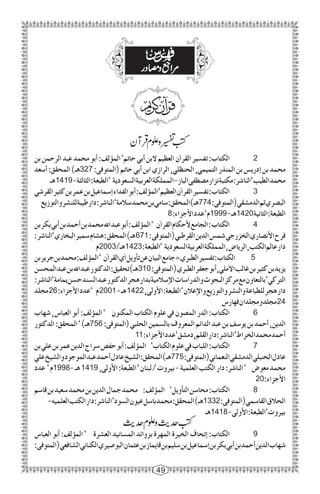 فہرس
مراجع ومصادر
قرآن کریم
کتب تفسیر وعلوم قرآن
2 الكتاب: تفسير القرآن العظيم لابن أبي حاتم" المؤلف: أبو محمد عبد الرحمن بن
محمد بن إدريس بن المنذر التميمي، الحنظلي، الرازي ابن أبي حاتم (المتوفى: 327هـ) المحقق: أسعد
محمد الطيب "الناشر: مكتبة نزار مصطفى الباز - المملكة العربية السعودية "الطبعة: الثالثة - 1419هـ
3 الكتاب: تفسير القرآن العظيم "المؤلف: أبو الفداء إسماعيل بن عمر بن كثير القرشي
البصري ثم الدمشقي (المتوفى: 774هـ) المحقق: سامي بن محمد سلامة "الناشر: دار طيبة للنشر والتوزيع
الطبعة: الثانية 1420هـ - 1999م "عدد الأجزاء: 8
4 الكتاب: الجامع لأحكام القرآن "المؤلف: أبو عبد الله محمد بن أحمد بن أبي بكر بن
فرح الأنصاري الخزرجي شمس الدين القرطبي (المتوفى: 671هـ) المحقق: هشام سمير البخاري "الناشر:
دار عالم الكتب، الرياض، المملكة العربية السعودية "الطبعة: 1423هـ/ 2003م
5 الكتاب: تفسير الطبري = جامع البيان عن تأويل آي القرآن "المؤلف: محمد بن جرير بن
يزيد بن كثير بن غالب الآملي، أبو جعفر الطبري (المتوفى: 310هـ) تحقيق: الدكتور عبد الله بن عبد المحسن
التركي "بالتعاون مع مركز البحوث والدراسات الإسلامية بدار هجر الدكتور عبد السند حسن يمامة "الناشر:
دار هجر للطباعة والنشر والتوزيع والإعلان "الطبعة: الأولى، 1422هـ - 2001م "عدد الأجزاء: 26 مجلد
24 مجلد ومجلدان فهارس
6 الكتاب: الدر المصون في علوم الكتاب المكنون "المؤلف: أبو العباس، شهاب
الدين، أحمد بن يوسف بن عبد الدائم المعروف بالسمين الحلبي (المتوفى: 756هـ) "المحقق: الدكتور
أحمد محمد الخراط "الناشر: دار القلم، دمشق "عدد الأجزاء: 11
7 الكتاب: اللباب في علوم الكتاب "المؤلف: أبو حفص سراج الدين عمر بن علي بن
عادل الحنبلي الدمشقي النعماني (المتوفى: 775هـ) المحقق: الشيخ عادل أحمد عبد الموجود والشيخ علي
محمد معوض "الناشر: دار الكتب العلمية - بيروت / لبنان "الطبعة: الأولى، 1419 هـ - 1998م "عدد
الأجزاء: 20
8 الكتاب: محاسن التأويل "المؤلف: محمد جمال الدين بن محمد سعيد بن قاسم
الحلاق القاسمي (المتوفى: 1332هـ) المحقق: محمد باسل عيون السود "الناشر: دار الكتب العلميه -
بيروت "الطبعة: الأولى - 1418هـ
کتب حدیث وعلوم حدیث
9 الكتاب: إتحاف الخيرة المهرة بزوائد المسانيد العشرة "المؤلف: أبو العباس
شهاب الدين أحمد بن أبي بكر بن إسماعيل بن سليم بن قايماز بن عثمان البوصيري الكناني الشافعي (المتوفى:
49